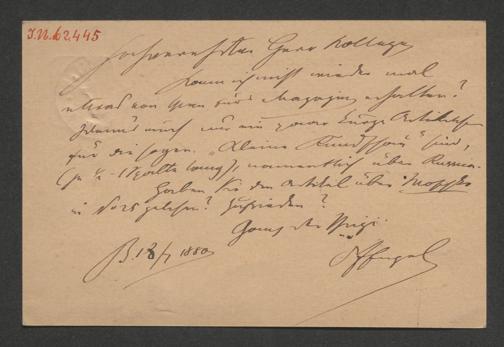 I.N. 62445
Hochverehrter Herr Kollege
Kann ich nicht wieder mal
etwas von Ihnen fürs Magazin erhalten?
wenns auch nur ein paar kurze Artikelchen
für die sogen. „Kleine Rundschau“ sind,
(je ½-1 Spalte lang), namentlich über
Haben Sie den Artikel über
in No 25 gelesen? Zufrieden?
Ganz der Ihrige
B. 18/7 1880